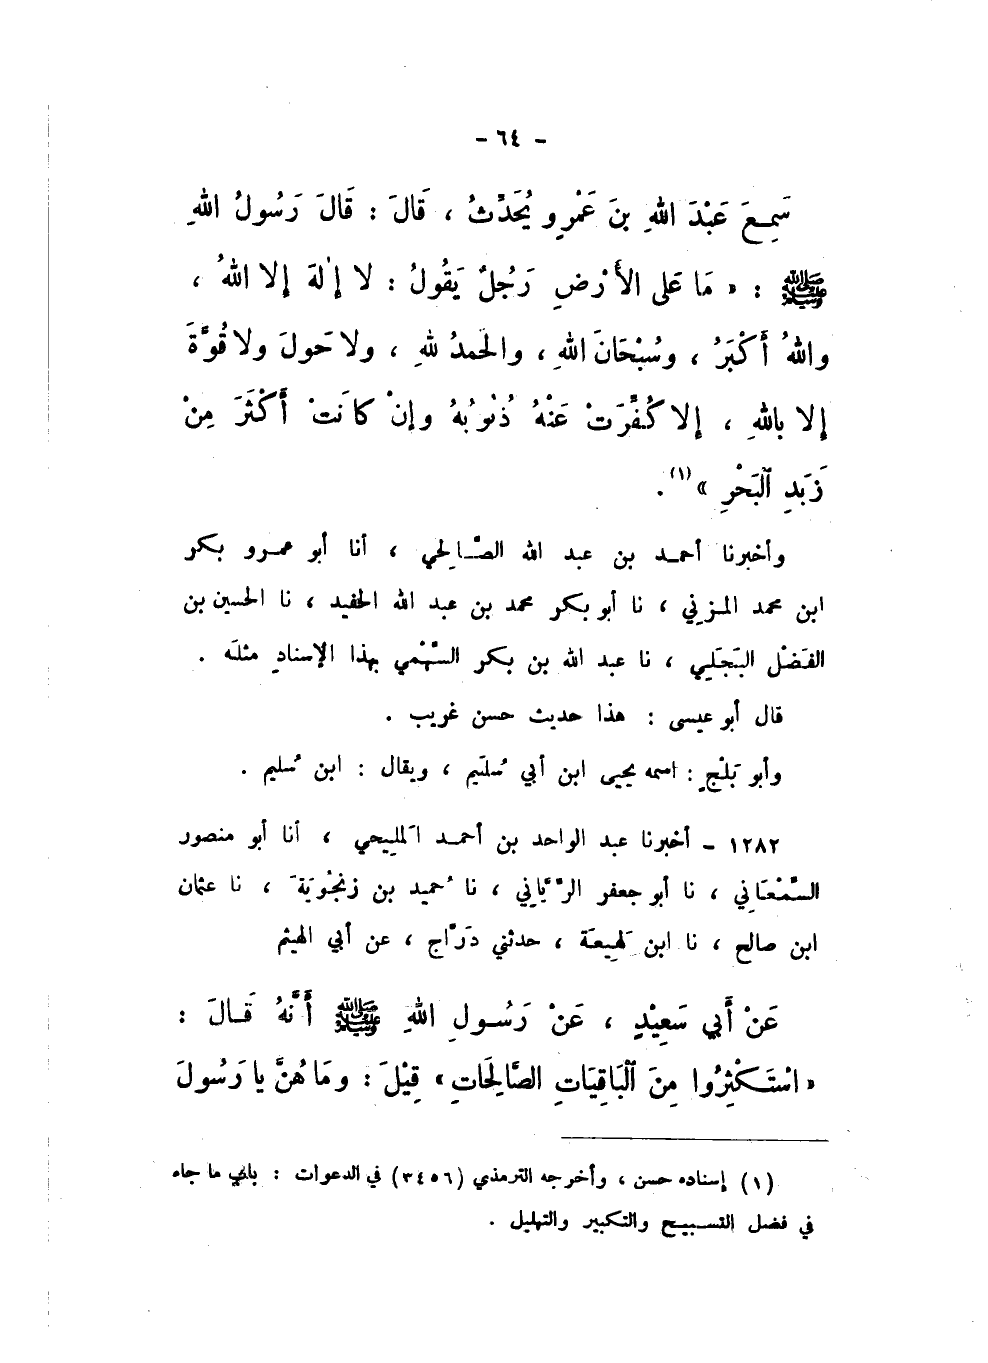 - ٦٤ -
سَمِعَ عَبْدَ اللهِ بنَ عَمْرٍو يُحَدِّثُ ، قَالَ : قَالَ رَسُولُ اللهِ
ﷺ : « مَا عَلى الأَرْضِ رَجُلٌ يَقُولُ : لا إِلهَ إِلا اللهُ ،
واللهُ أَكْبَرُ ، وسُبْحَانَ اللهِ ، والحَمدُ للهِ ، ولا حَولَ ولا قُوَّةَ
إلا باللهِ ، إلا كُفِّرَتْ عَنْهُ ذُنُوبُهُ وإنْ كانَتْ أَكْثَرَ مِنْ
زَبَدِ ٱلبَحْرِ » (١) .
وأخبرنا أحمد بن عبد الله الصَّالِحي ، أنا أبو عمرو بكر
ابن محمد المزني ، نا أبو بكر محمد بن عبد الله الحفيد ، نا الحسين بن
الفَضْل البَجَلِيي ، نا عبد الله بن بكر السَّهْمي بهذا الإسنادِ مثلَه .
قال أبو عيسى : هذا حديث حسن غريب .
وأبو بَلْجٍ : اسمه يحيى ابن أبي سُلَيم ، ويقال : ابن سُليم .
١٢٨٢ - أخبرنا عبد الواحد بن أحمد المَليحي ، أنا أبو منصور
السَّمْعَاني ، نا أبو جعفر الرَّيَّاني ، نا حُميد بن زنجْويَةَ ، نا عثمان
ابن صالح ، نا ابن لَهِيعَة ، حدثني دَرَّاج ، عن أبي الهيثم
عَنْ أَبي سَعِيْدٍ ، عَنْ رَسُولِ اللهِ ﷺ أَنَّهُ قَالَ :
« اسْتَكْثِرُوا مِنَ ٱلْبَاقِيَاتِ الصَّالِحَاتِ » قِيْلَ : ومَا هُنَّ يا رَسُولَ
(١) إسناده حسن ، وأخرجه الترمذي (٣٤٥٦) في الدعوات : باب ما جاء
في فضل التسبيح والتكبير والتهليل .